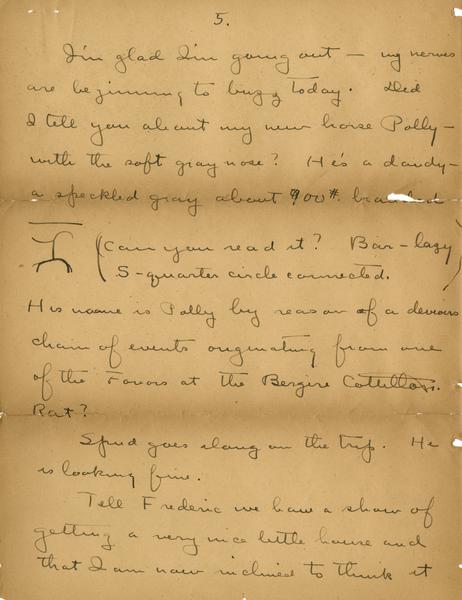 5.
I'm glad I'm going out — my nerves
are beginning to buzz today. Did
I tell you about my new horse Polly —
with the soft gray nose? He's a dandy —
a speckled gray about 900#. branded
(Can you read it? Bar-lazy
S-quarter circle connected.)
His name is Polly by reason of a devious
chain of events originating from one
of the Favors at the Bergère Cotillion.
Rat?
Spud goes along on the trip. He
is looking fine.
Tell Frederic we have a show of
getting a very nice little house and
that I am now inclined to think it